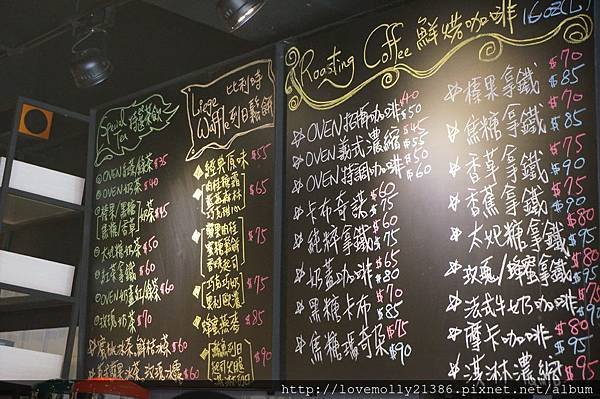 Special Tea 特選茶飲
OVEN 綠/綠茶 $35
OVEN 奶茶 $40
榛果/黑糖 焦糖/香草 奶茶 $45
太妃糖奶茶 $50
紅茶拿鐵 $60
OVEN 奶蓋紅/綠 $60
玫瑰奶茶 $70
蜜桃冰茶 鮮桔綠茶 $60
$60
比利時
Liege Waffle 列日鬆餅
經典原味 $55
$65
$75
巧克力奶油
$75
蜂蜜脆香 $80
$90
Roasting Coffee 鮮焙咖啡 16oz (L)
OVEN 招牌咖啡 $40 $50
OVEN 義式濃縮 $45 $55
OVEN 特調咖啡 $50
卡布奇諾 $60 $75
純粹拿鐵 $60 $75
奶蓋咖啡 $65 $80
黑糖卡布 $70 $85
焦糖瑪奇朵 $75 $90
榛果拿鐵 $70 $85
焦糖拿鐵 $70 $85
香草拿鐵 $75 $90
香蕉拿鐵 $75 $90
太妃糖拿鐵 $80 $95
玫瑰/蜂蜜拿鐵 $80 $95
法式牛奶咖啡 $80 $95
摩卡咖啡 $80 $95
淇淋濃縮 $95
http://lovemolly21386.pixnet.net/album